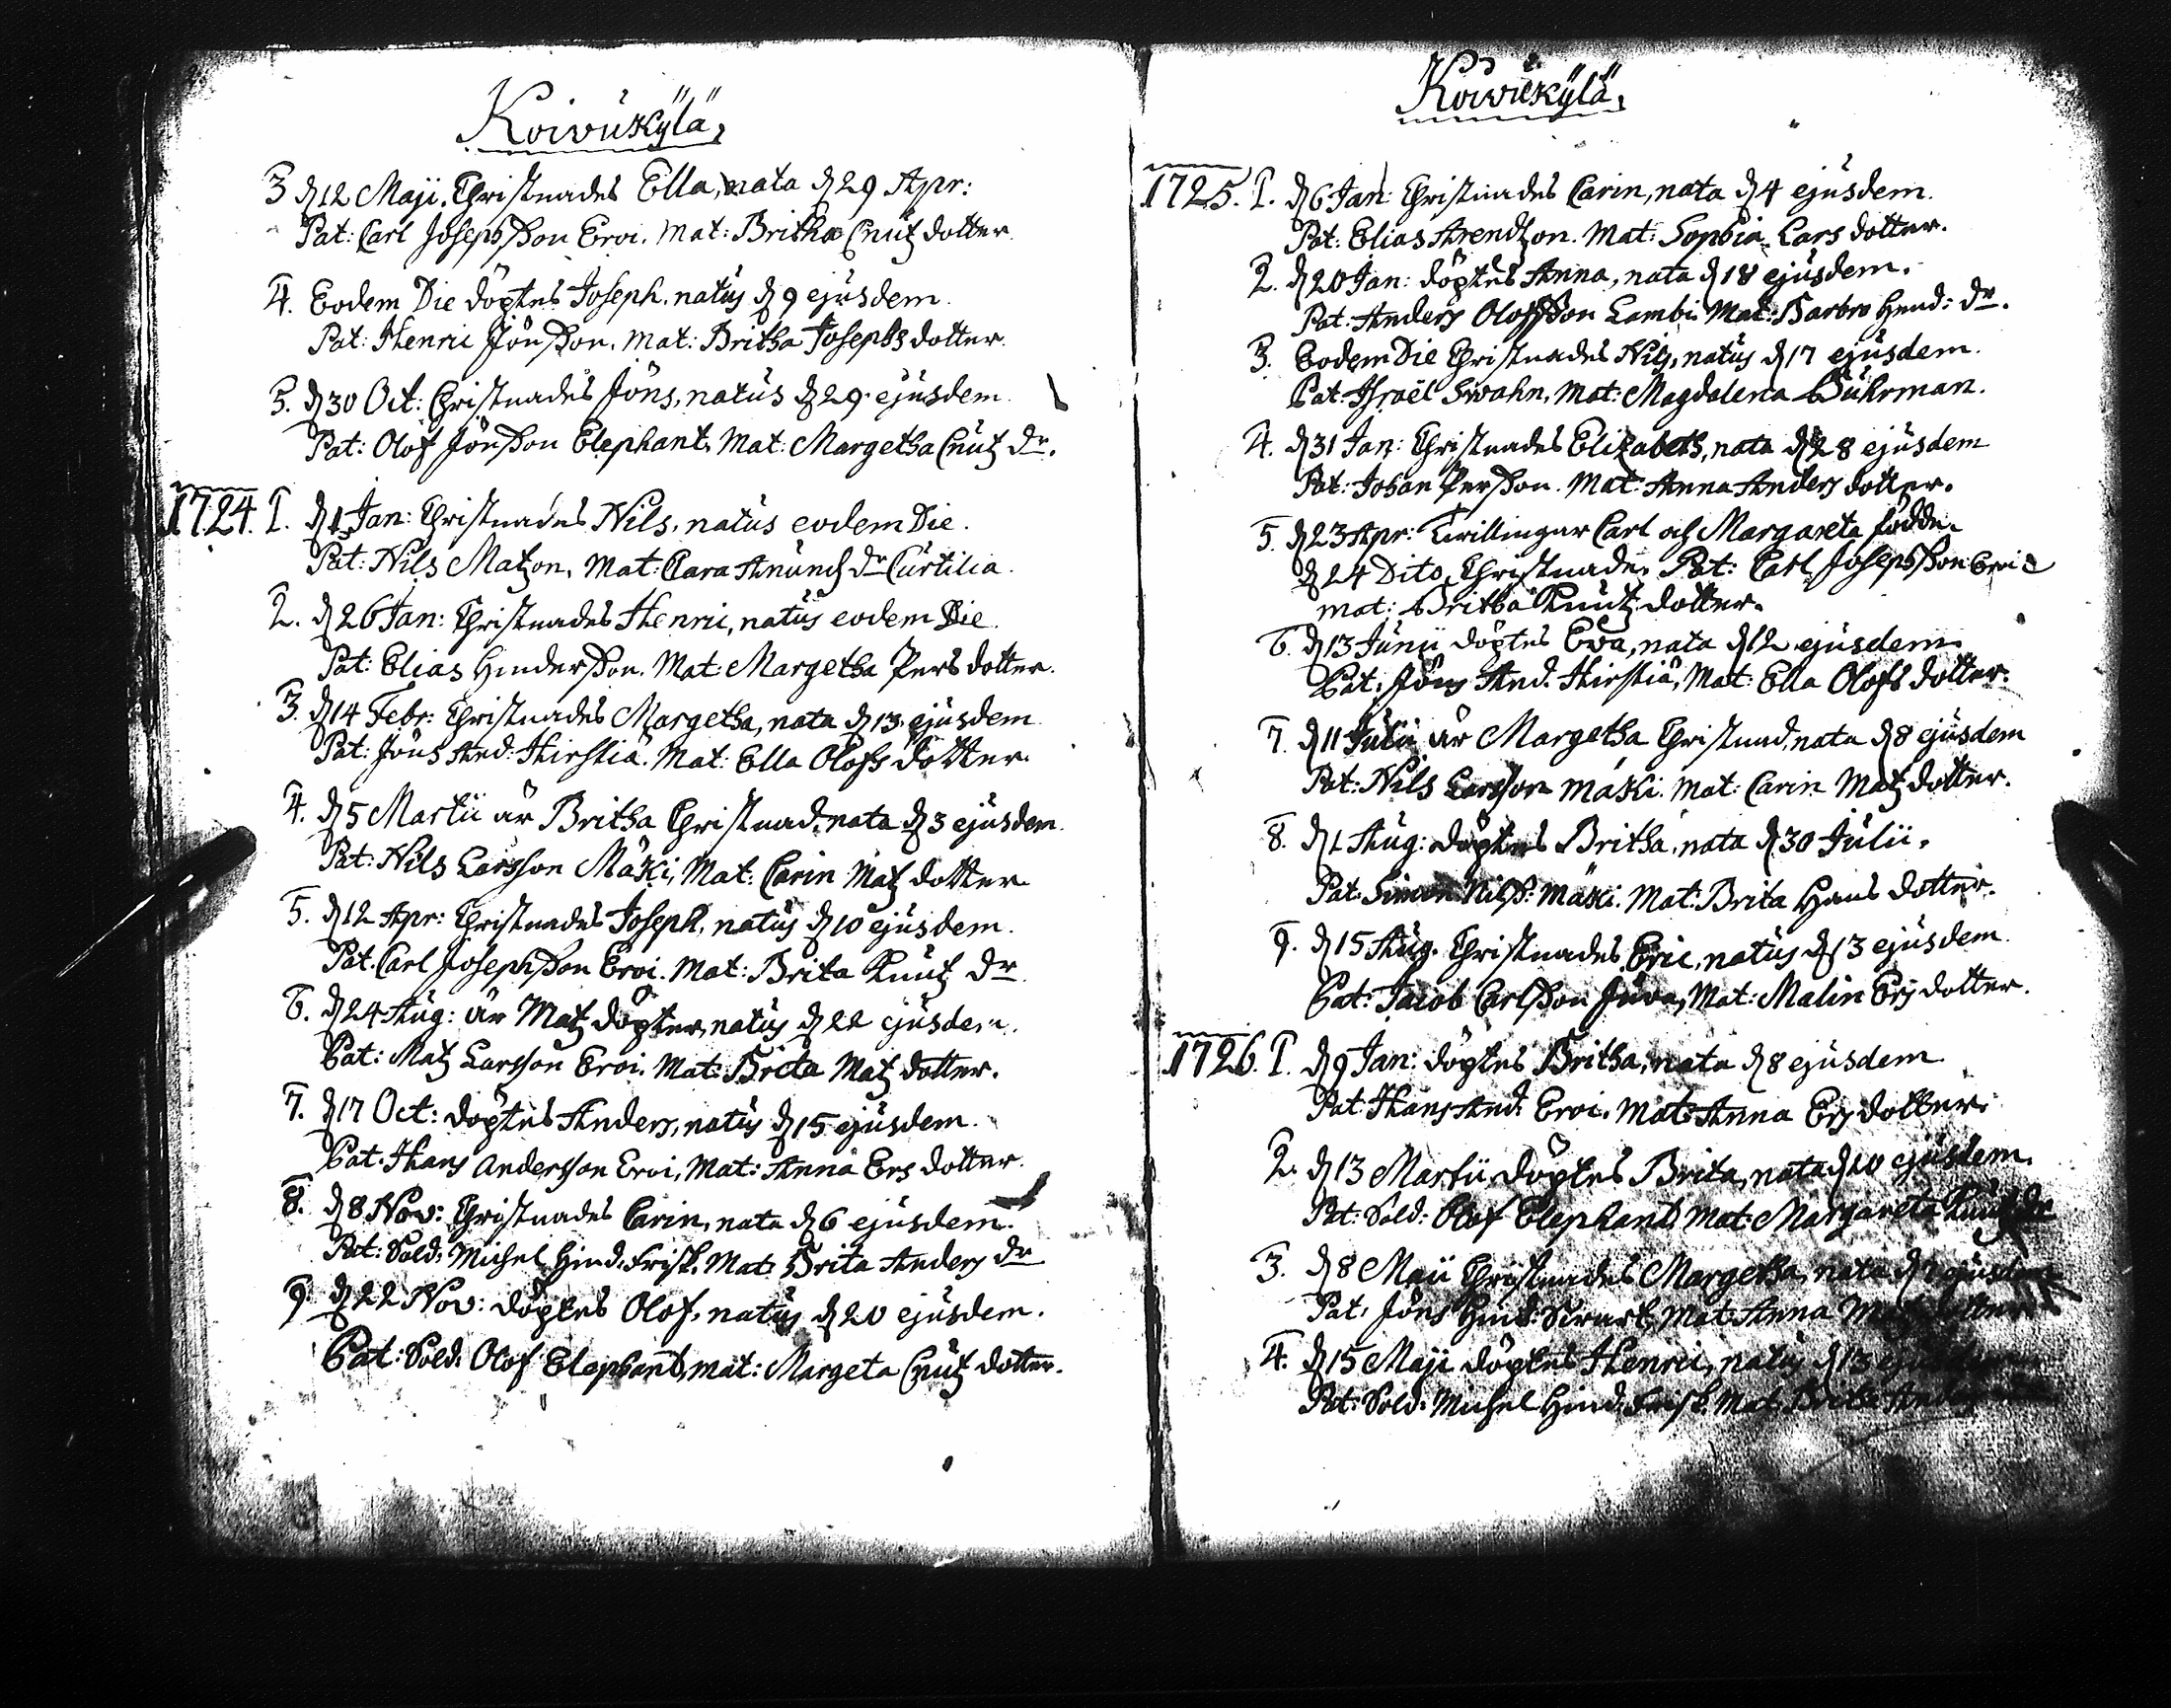 Koivúkÿlä,
3 d. 12 Maji. Christnades Ella, nata d. 29 Apr:
Pat: Carl Josephsson Eroi. Mat: Britha Cnutz dotter
4. Eodem Die döptes Joseph. natus d. 9 ejusdem.
Pat: Henric Jönsson. Mat: Britha Josephs dotter.
5. d. 30 Oct: Christnades Jöns, natus d. 29. ejusdem.
Pat: Olof Jönsson Elephant. Mat: Margetha Cnutz dr.
1724. 1. d. 1 Jan: Christnades Nils, natus eodem Die.
Pat: Nils Matzon. Mat: Clara Anunds dr Curtilia.
2. d. 26 Jan: Christnades Henric, natus eodem Die.
Pat: Elias Hindersson. Mat: Margetha Pers dotter.
3. d. 14 Febr: Christnades Margetha, nata d. 13. ejusdem
Pat: Jöns And: Hirstiä. Mat: Ella Olofs dotter.
4. d. 5 Martii är Britha Christnad, nata d. 3 ejusdem.
Pat: Nils Larsson Mäki, Mat: Carin Matz dotter
5. d. 12 Apr: Christnades Joseph, natus d. 10 ejusdem.
Pat. Carl Josephsson Eroi. Mat: Brita Knutz dr
6. d. 24 Aug: är Matz döpter, natus d. 22 ejusdem.
Pat: Matz Larsson Eroi. Mat: Brita Matz dotter.
7. d. 17 Oct: döptes Anders, natus d. 15 ejusdem.
Pat: Hans Andersson Eroi, Mat: Anna Ers dotter.
8. d. 8 Nov: Christnades Carin, nata d. 6 ejusdem.
Pat: Sold: Michel Hind: Frisk. Mat: Brita Anders dr
9. d. 22 Nov: döptes Olof, natus d. 20 ejusdem.
Pat: Sold: Olof Elephant, mat: Margeta Cnutz dotter.
Koivúkÿlä,
1725. 1. d. 6 Jan: Christnades Carin, nata d. 4 ejusdem.
Pat: Elias Arendzon. Mat: Sophia Lars dotter.
2. d. 20 Jan: döptes Anna, nata d. 18 ejusdem.
Pat: Anders Olofsson Lambi. Mat: Barbro Hend: dr.
3. Eodem Die Christnades Nils, natus d. 17 ejusdem.
Pat: Israël Swahn, Mat: Magdalena Buhrman.
4. d. 31 Jan: Christnades Elizabeth, nata d. 28 ejusdem
Pat: Johan Persson. Mat: Anna Anders dotter.
5. d. 23 Apr: Twillingar Carl och Margareta födde.
d. 24 Dito, Christnade. Pat: Carl Josephsson Eroi
mat: Britha Knutz dotter.
6. d. 13 Junii döptes Eva, nata d. 12 ejusdem.
Pat: Jöns And. Hirstiä, Mat: Ella Olofs dotter.
7. d. 11 Julii är Margetha Christnad, nata d. 8 ejusdem
Pat: Nils Larsson Mäki. Mat: Carin Matz dotter.
8. d. 1 Aug: döptes Britha, nata d. 30 Julii.
Pat: Simon Nilss: Mäki. Mat: Brita Hans dotter.
9. d. 15 Aug. Christnades Eric, natus d. 13 ejusdem.
Pat: Jacob Carlsson Juva, Mat: Malin Ers dotter.
1726. 1. d. 9 Jan: döptes Britha, nata d. 8 ejusdem
Pat: Hans And: Eroi. Mat: Anna Ers dotter.
2. d. 13 Martii döptes Brita, nata d. 10 ejusdem.
Pat: Sold: Olof Elephant, Mat: Margareta Knutz dr
3. d. 8 Maii Christnades Margetha, nata d. ejusdem
Pat: Jöns Hind: Swart, Mat: Anna Matz dotter
4. d. 15 Maji döptes Henric, natus d. 13 ejusdem
Pat: Sold: Michel Hind: Frisk. Mat: Brita Anders